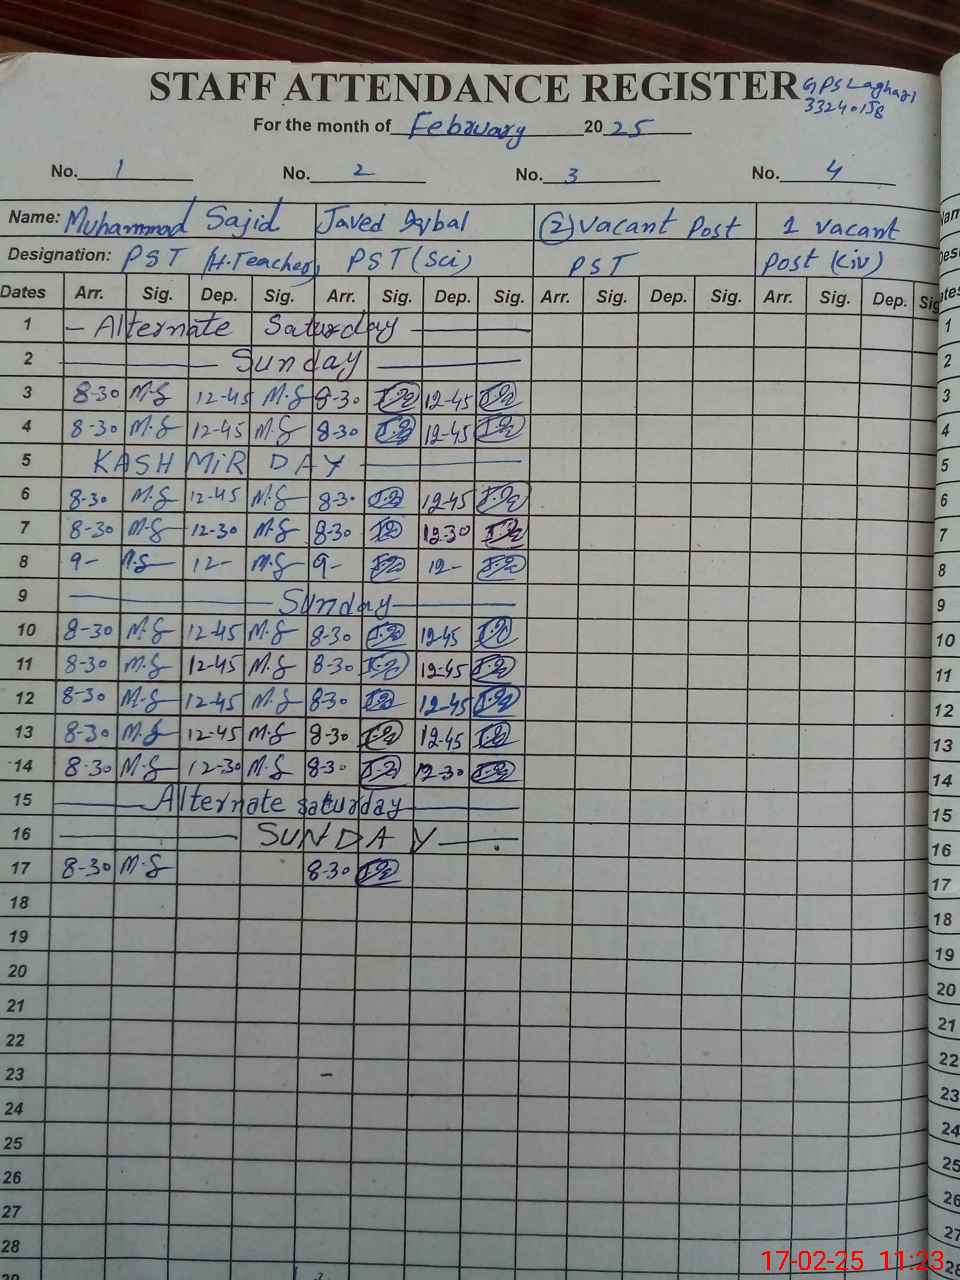 STAFF ATTENDANCE REGISTER
GPS Laghari
33240158
For the month of February 2025
No. 1 No. 2 No. 3 No. 4
Name: Muhammad Sajid Javed Iqbal (2) Vacant Post 1 Vacant
Designation: PST (H.Teacher) PST (Sci) PST Post (Civ)
Dates Arr. Sig. Dep. Sig. Arr. Sig. Dep. Sig. Arr. Sig. Dep. Sig. Arr. Sig. Dep. Sig
1 - Alternate Saturday
2 Sunday
3 8-30 M.S 12-45 M.S 8-30 12-45
4 8-30 M.S 12-45 M.S 8-30 12-45
5 KASHMIR DAY
6 8-30 M.S 12-45 M.S 8-30 12-45
7 8-30 M.S 12-30 M.S 8-30 12-30
8 9- M.S 12- M.S 9- 12-
9 Sunday
10 8-30 M.S 12-45 M.S 8-30 12-45
11 8-30 M.S 12-45 M.S 8-30 12-45
12 8-30 M.S 12-45 M.S 8-30 12-45
13 8-30 M.S 12-45 M.S 8-30 12-45
14 8-30 M.S 12-30 M.S 8-30 12-30
15 Alternate saturday
16 SUNDAY
17 8-30 M.S 8-30
18
19
20
21
22
23 -
24
25
26
27
28
17-02-25 11:23